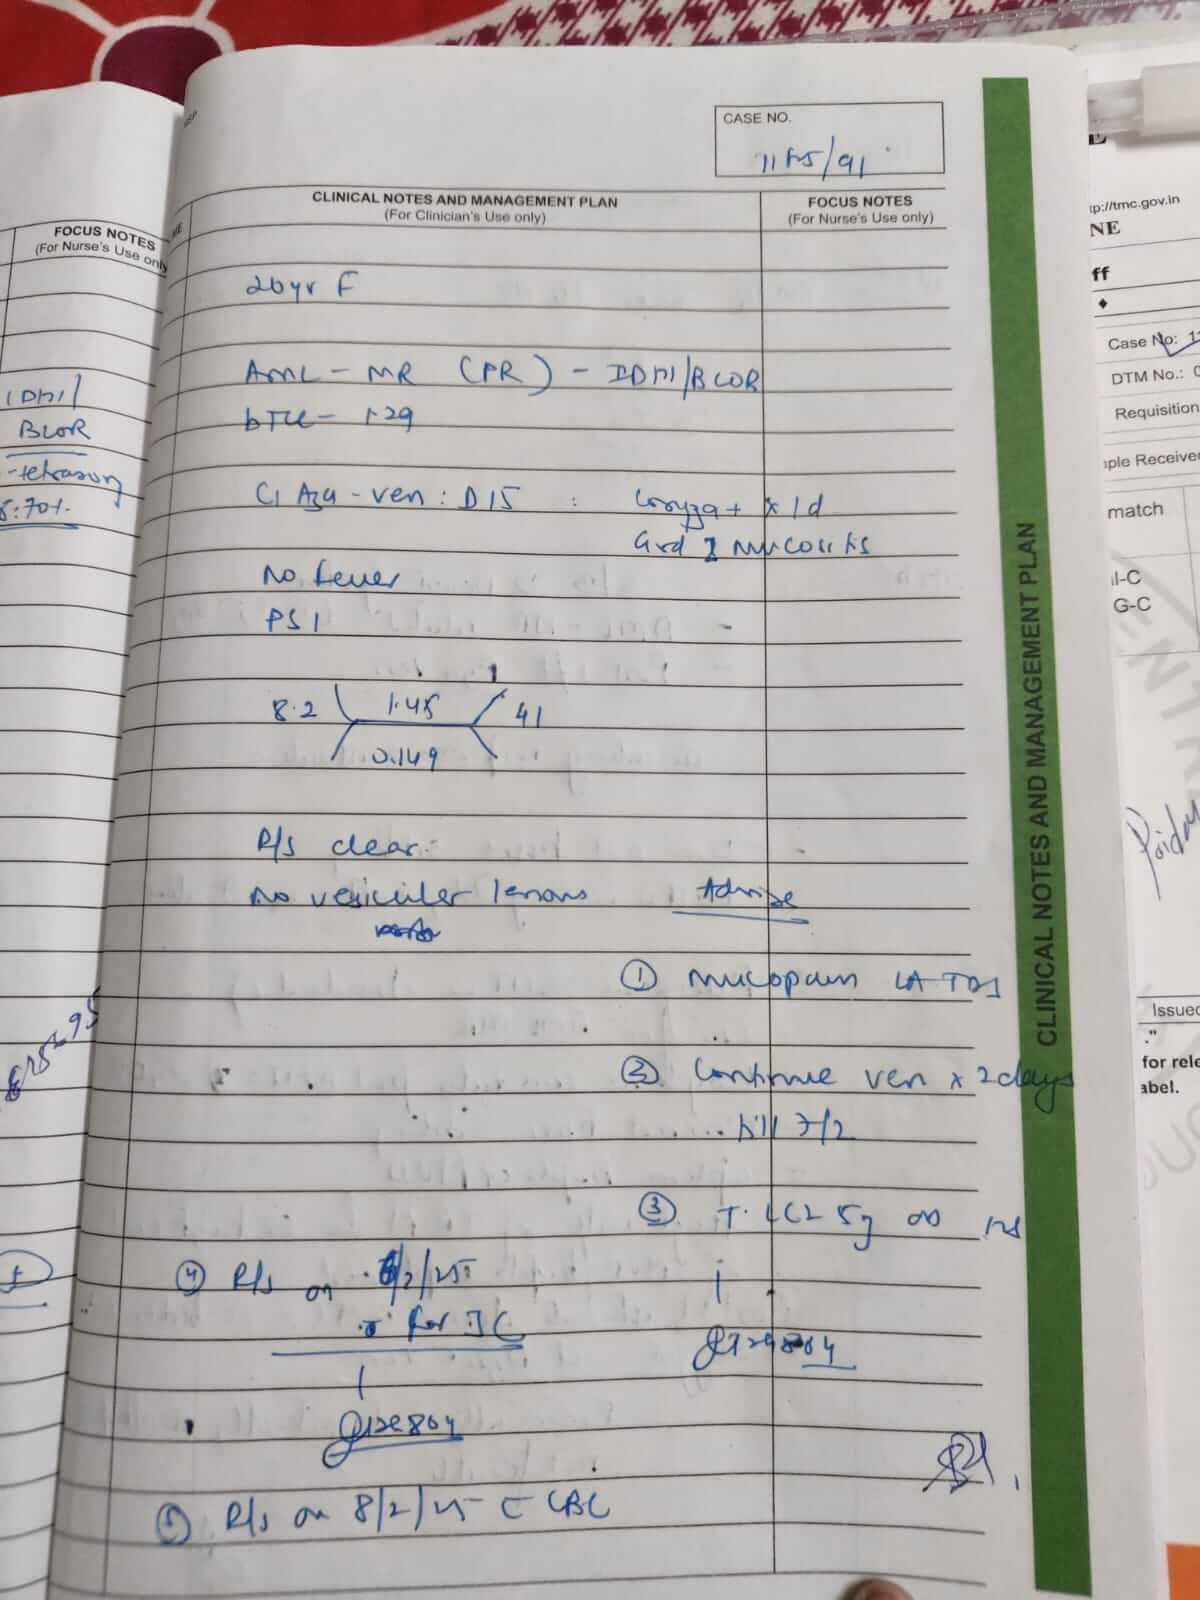 CASE NO.
CLINICAL NOTES AND MANAGEMENT PLAN
(For Clinician's Use only)
FOCUS NOTES
(For Nurse's Use only)
20yr F
AML - MR (PR) - IDH1/BCOR
C1 Aza-ven: D15 : Coryza + x 1d
Grd I mucositis
No fever
PS 1
8.2 1.45 41
0.149
R/S clear
No vesicular lesions
Advise
① Mucopain LA TDS
② Continue ven x 2days
till 7/2
③ T.
④ R/S on 6/2/25
for IC
⑤ R/S on 8/2/25 c CBC
CLINICAL NOTES AND MANAGEMENT PLAN
FOCUS NOTES
(For Nurse's Use only
IDH1/
BCOR
p://tmc.gov.in
NE
ff
Case No: 1
DTM No.: 0
Requisition
ple Receive
match
l-C
G-C
Issued
for rele
abel.